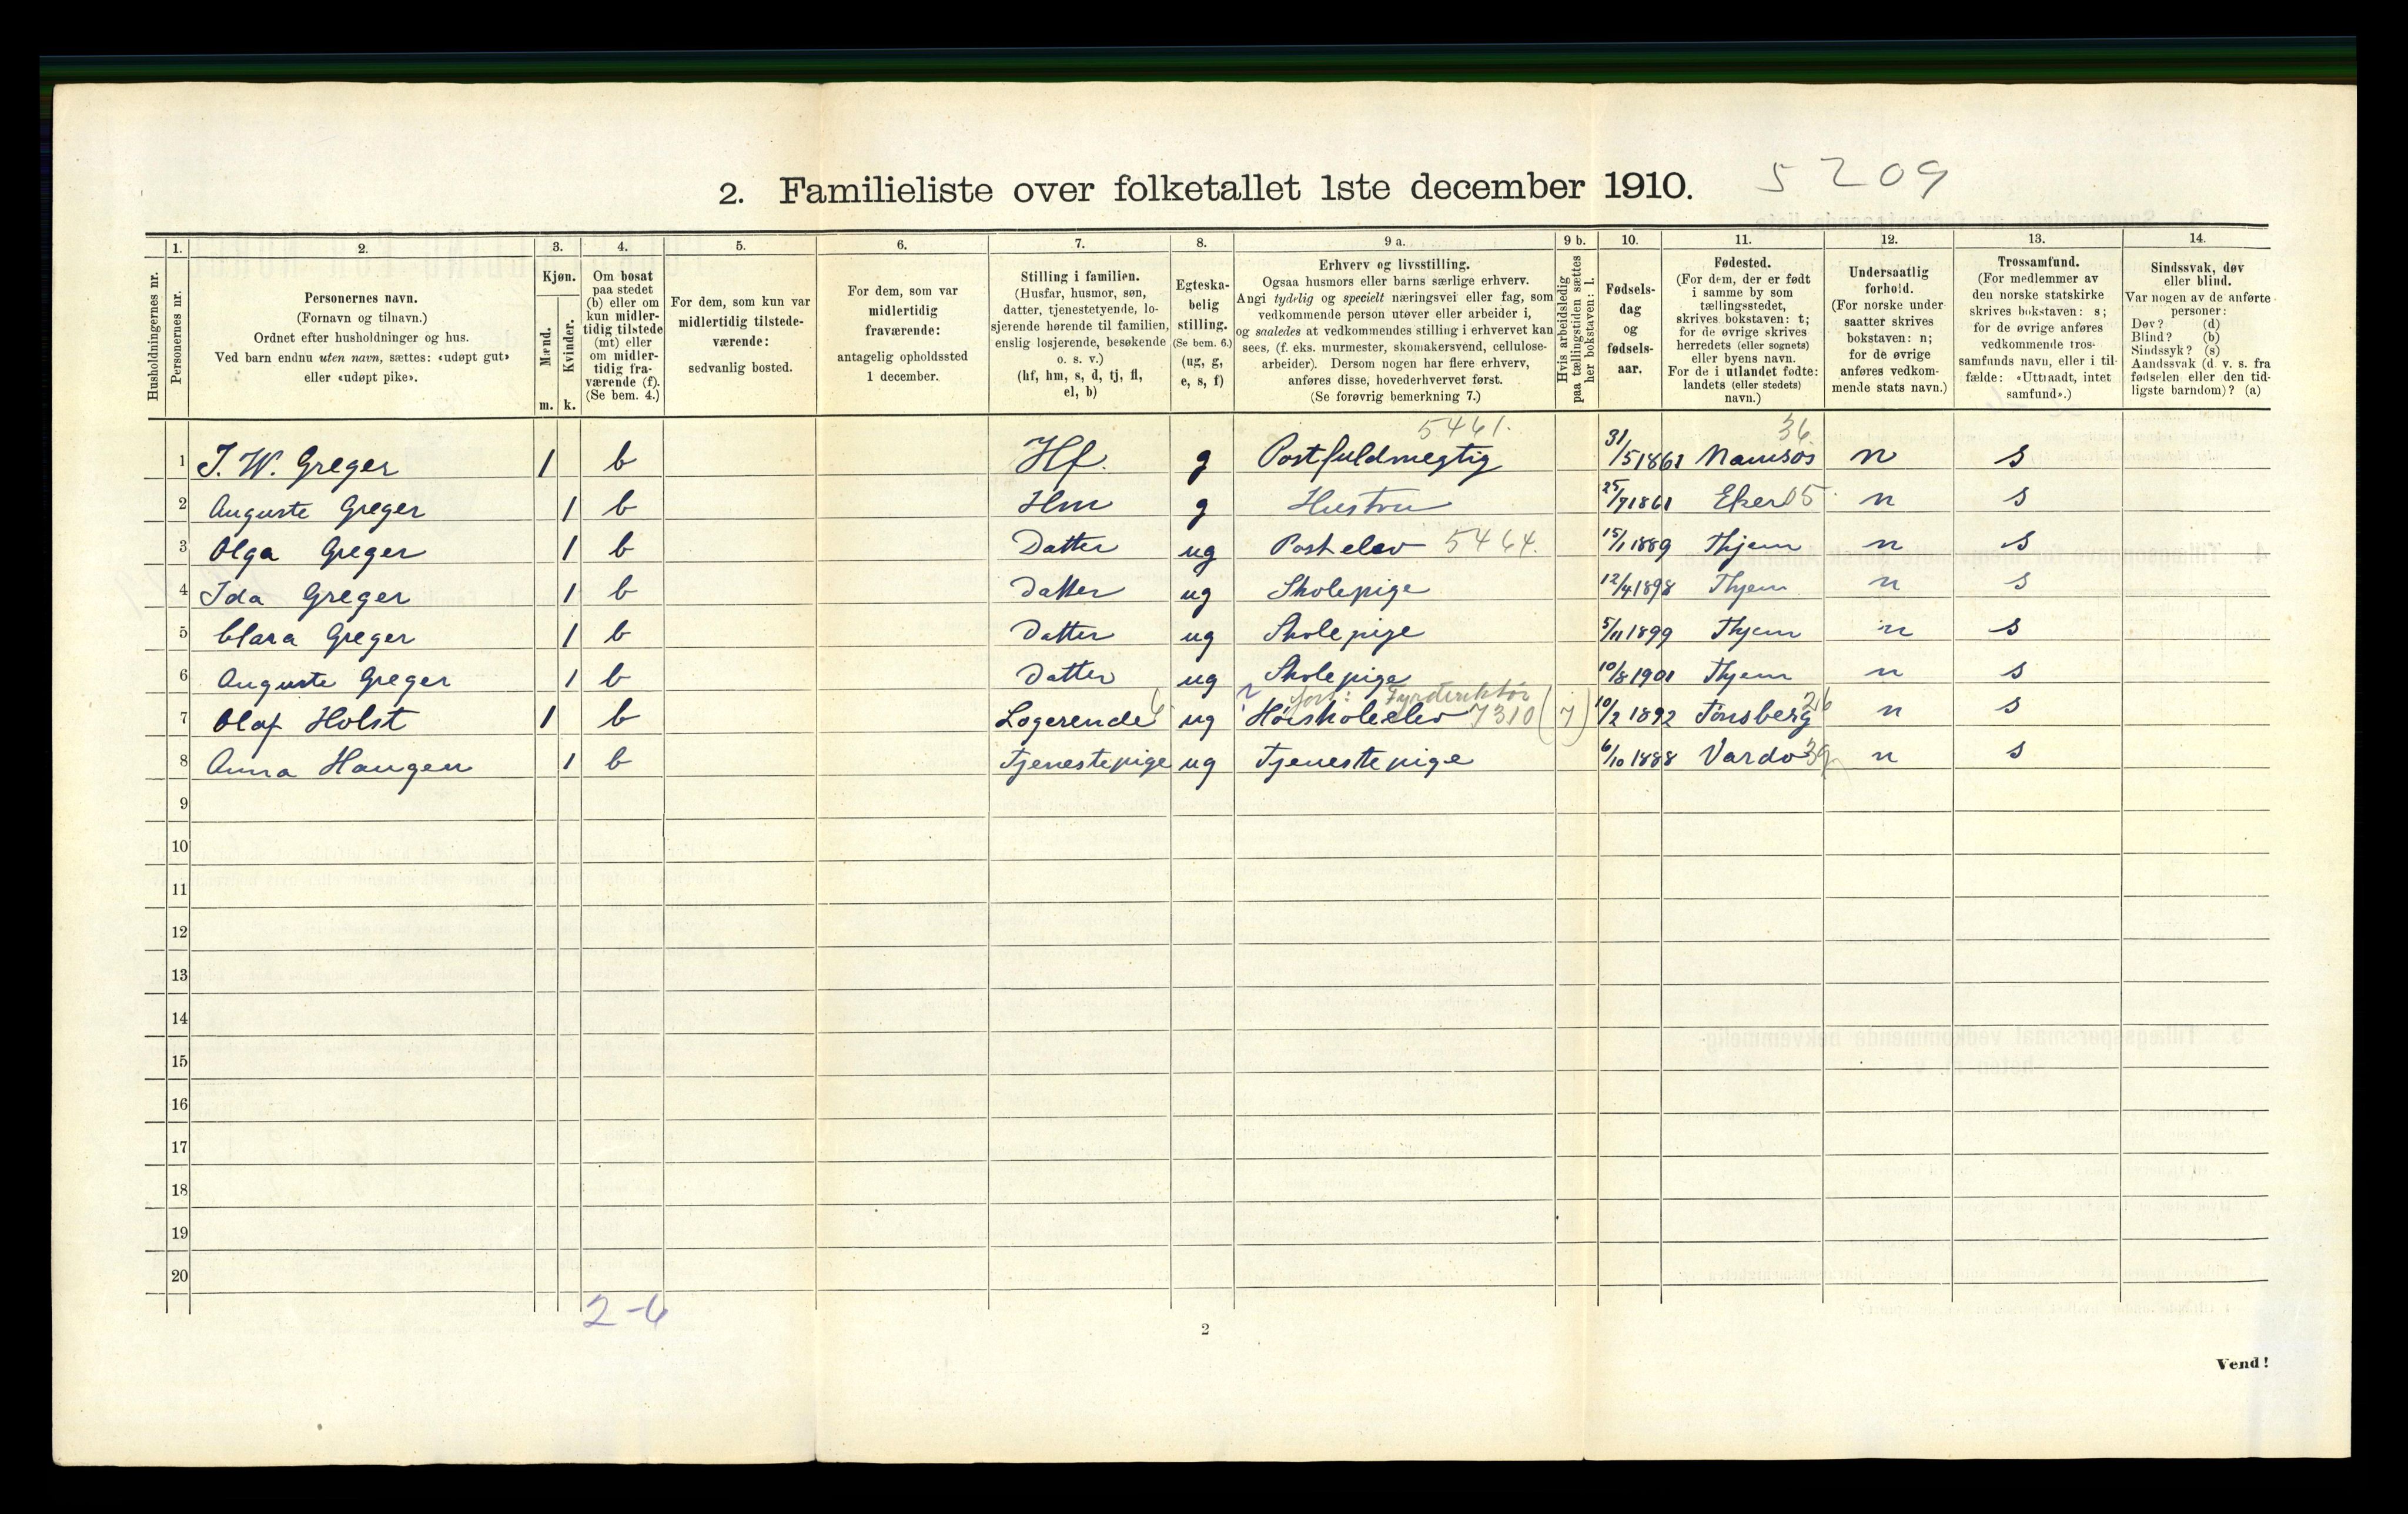 2. Familieliste over folketallet 1ste december 1910. 5209
1. 2. 3. 4. 5. 6. 7. 8. 9 a. 9 b. 10. 11. 12. 13. 14.
Husholdningernes nr.
Personernes nr.
Personernes navn.
(Fornavn og tilnavn.)
Ordnet efter husholdninger og hus.
Ved barn endnu uten navn, sættes: «udøpt gut»
eller «udøpt pike».
Kjøn.
Mænd.
Kvinder.
m. k.
Om bosat
paa stedet
(b) eller om
kun midler-
tidig tilstede
(mt) eller
om midler-
tidig fra-
værende (f).
(Se bem. 4.)
For dem, som kun var
midlertidig tilstede-
værende:
sedvanlig bosted.
For dem, som var
midlertidig
fraværende:
antagelig opholdssted
1 december.
Stilling i familien.
(Husfar, husmor, søn,
datter, tjenestetyende, lo-
sjerende hørende til familien,
enslig losjerende, besøkende
o. s. v.)
(hf, hm, s, d, tj, fl,
el, b)
Egteska-
belig
stilling.
(Se bem. 6.)
(ug, g,
e, s, f)
Erhverv og livsstilling.
Ogsaa husmors eller barns særlige erhverv.
Angi tydelig og specielt næringsvei eller fag, som
vedkommende person utøver eller arbeider i,
og saaledes at vedkommendes stilling i erhvervet kan
sees, (f. eks. murmester, skomakersvend, cellulose-
arbeider). Dersom nogen har flere erhverv,
anføres disse, hovederhvervet først.
(Se forøvrig bemerkning 7.)
Hvis arbeidsledig
paa tællingstiden sættes
her bokstaven: l.
Fødsels-
dag
og
fødsels-
aar.
Fødested.
(For dem, der er født
i samme by som
tællingsstedet,
skrives bokstaven: t;
for de øvrige skrives
herredets (eller sognets)
eller byens navn.
For de i utlandet fødte:
landets (eller stedets)
navn.)
Undersaatlig
forhold.
(For norske under-
saatter skrives
bokstaven: n;
for de øvrige
anføres vedkom-
mende stats navn.)
Trossamfund.
(For medlemmer av
den norske statskirke
skrives bokstaven: s;
for de øvrige anføres
vedkommende tros-
samfunds navn, eller i til-
fælde: «Uttraadt, intet
samfund».)
Sindssvak, døv
eller blind.
Var nogen av de anførte
personer:
Døv? (d)
Blind? (b)
Sindssyk? (s)
Aandssvak (d. v. s. fra
fødselen eller den tid-
ligste barndom)? (a)
5461. 36.
1 J. W. Greger 1 b Hf. g Postfuldmegtig 31/5 1861 Namsos n s
2 Auguste Greger 1 b Hm g Hustru 25/7 1861 Eker 05. n s
3 Olga Greger 1 b Datter ug Postelev 5464. 15/1 1889 Thjem n s
4 Ida Greger 1 b Datter ug Skolepige 12/4 1898 Thjem n s
5 Clara Greger 1 b Datter ug Skolepige 5/11 1899 Thjem n s
6 Auguste Greger 1 b Datter ug Skolepige 10/8 1901 Thjem n s
fors: Fyrdirektør
7 Olaf Holst 1 b Logerende ug Høiskoleelev 7310 (7) 10/2 1892 Tønsberg 26 n s
8 Anna Haugen 1 b Tjenestepige ug Tjenestepige 6/10 1888 Vardø 39 n s
9
10
11
12
13
14
15
16
17
18
19
20
2-6
2
Vend!